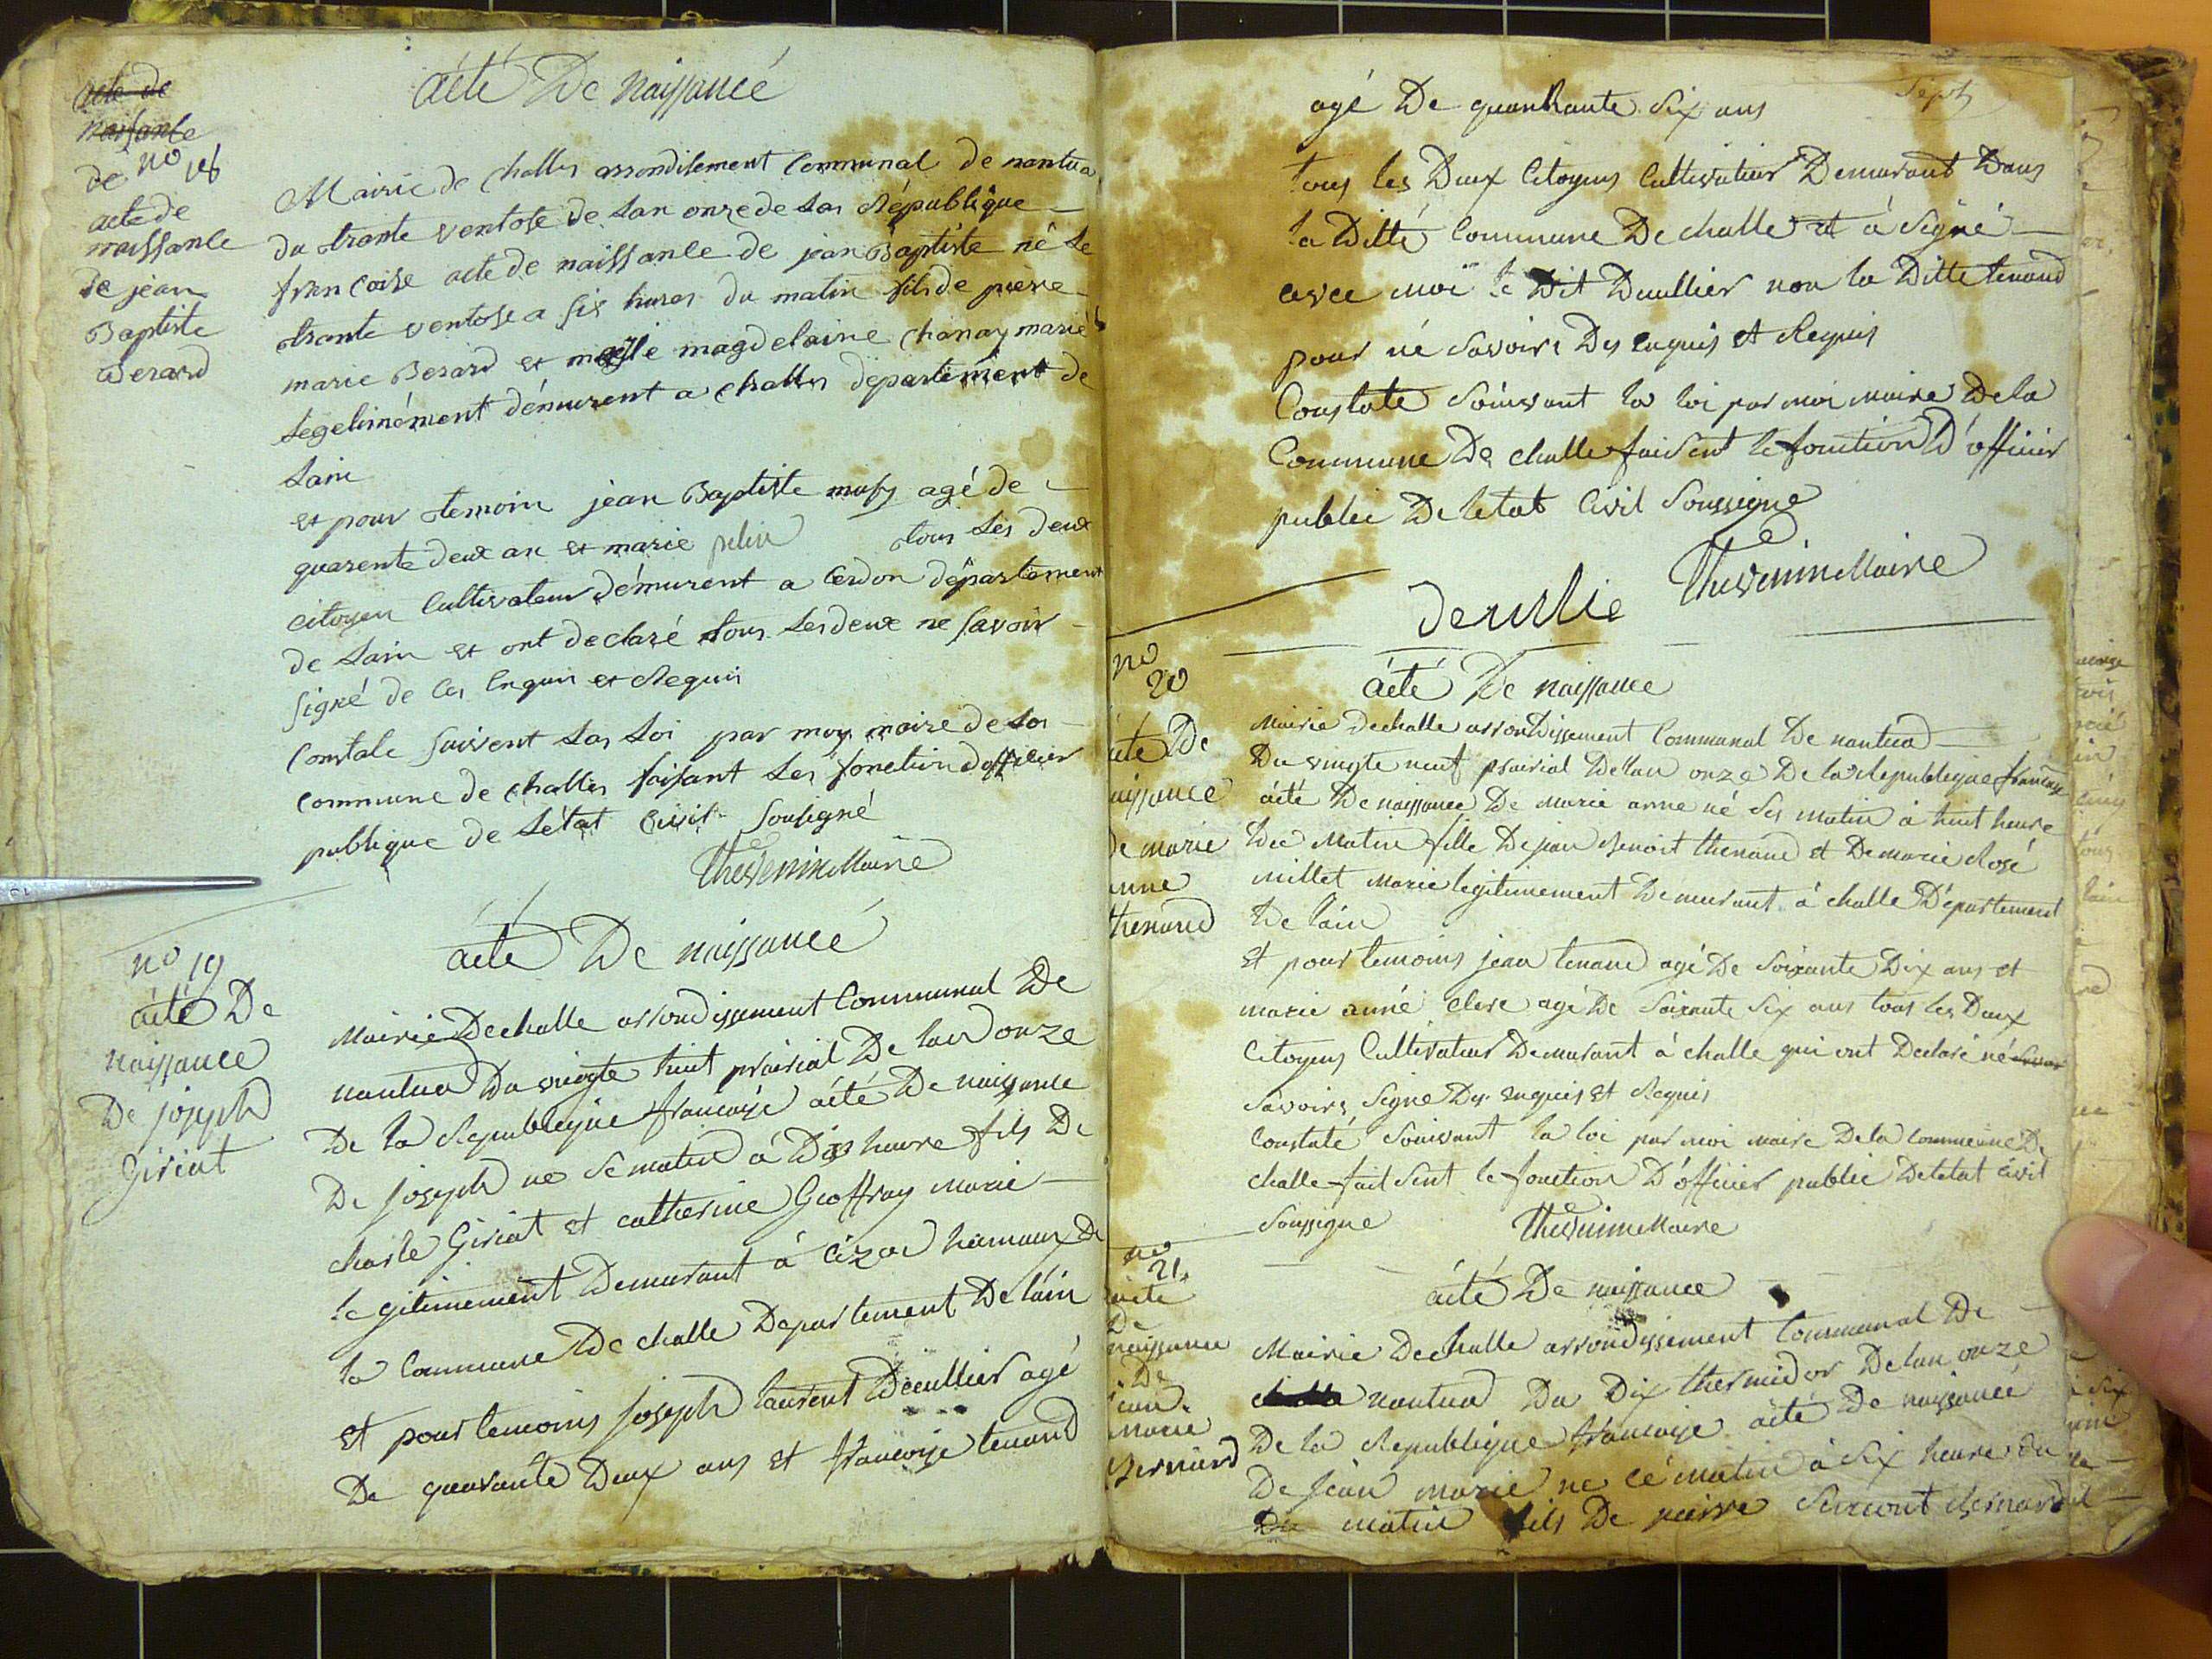 acte de
naissance
de no 18
acte de
naissance
de jean
Baptiste
Berard
acté De naissancé
Mairie de challes arrondisement Communal de nantua
du trante ventose de lan onze de la République
françoise acte de naissance de jean Baptiste né le
trante ventose a six hures du matin fils de piere
marie Berard et magdelaine chanay marié
legetimément démurent a challes departement de
lain
et pour temoin jean Baptiste agé de
quarente deux an et marie tous les deux
citoyen Cultivateur démurent a Cerdon département
de lain et ont declaré tous les deux ne savoir
signé de ces Enquis et Requis
Constate suivent la Loi par moy maire de la
commune de challes faisant les fonction dofficier
publique de Létat Civil Sousigné
Thevenin Maire
no 19
acté De
naissance
De joseph
Giriat
acté De naissancé
Mairie De challe arrondissement Communal De
nantua Du vingte huit prairial De lan onze
De la Republique francoise acté De naissance
De joseph né Se matin à Dix heure fils De
charle Giriat et catherine Geoffray marie
legitimement Demurant à Cizod hamaux De
la Commune De challe Departement De lain
et pour temoins joseph laurent Deullier agé
De quarante Deux ans et francoise tenand
Sept
agé De quarante Six ans
tous les Deux Citoyens Cultivateur Demurant Dans
la Ditte Commune De challe et à Signé
avec moi le Dit Deullier non la Ditte tenand
pour né Savoire Des enquis et Requis
Constaté Souivant la loi par moi maire De la
Commune De challe faisent le fonction D'officier
public De letat Civil Soussigne
Thevenin Maire
Deullie
no
20
acté De
naissance
De marie
anne
thenand
acté De naissance
Mairie De challe arrondissement Communal De nantua
Du vingte neuf prairial De lan onze De la Republique francoise
acté De naissance De marie anne né Ses matin à huit heure
Du Matin fille De jean Benoit thenand et De marie Rosé
millet marie legitimement Demurant à challe Departement
De lain
et pour temoins jean tenand agé De Soixante Dix ans et
marie anné clere agé De Soixante Six ans tous les Deux
Citoyens Cultivateur Demurant à challe qui ont Declaré né
Savoire Signe Des enquis et Requis
Constaté Souivant la loi par moi maire De la Commune De
challe fait Sent le fonction D'officier public De letat Civil
Soussigne
Thevenin Maire
no
21
acte
De
naissance
De
jean
marie
Bernard
acté De naissance
Mairie De challe arrondissement Communal De
nantua Du Dix thermidor De lan onze
De la Republique francoise acté De naissancé
De jean marie ne cé matin à Six heure du
Du matin fils De pierre Bernard